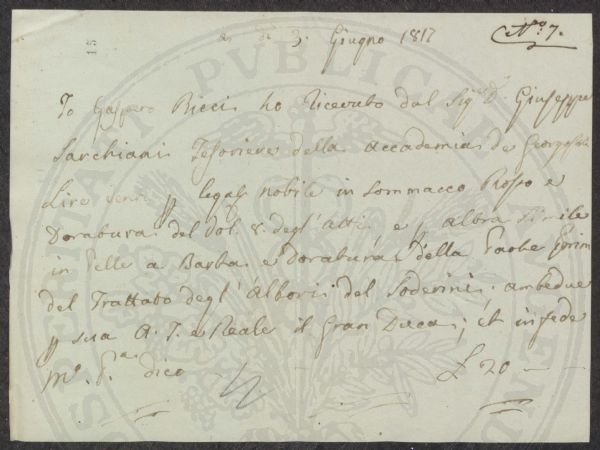 15
a dì 3. Giugno 1817
N.° 7.
Io Gaspero Ricci ho Ricevuto dal Sig.r D. Giuseppe
Sarchiani Tesoriere della Accademia de Georgofili
Lire venti p legat. nobile in Sommacco Rosso e
Doratura del Vol. 8. degl' Atti e p altra Simile
in Pelle a Barba e Doratura della Parte Prim
del Trattato degl' Alberi del Soderini ambedue
p sua A. I. e Reale il Gran Duca; et in fede
M.o P.a dico - - - £ 20 - -
PUBLICAE